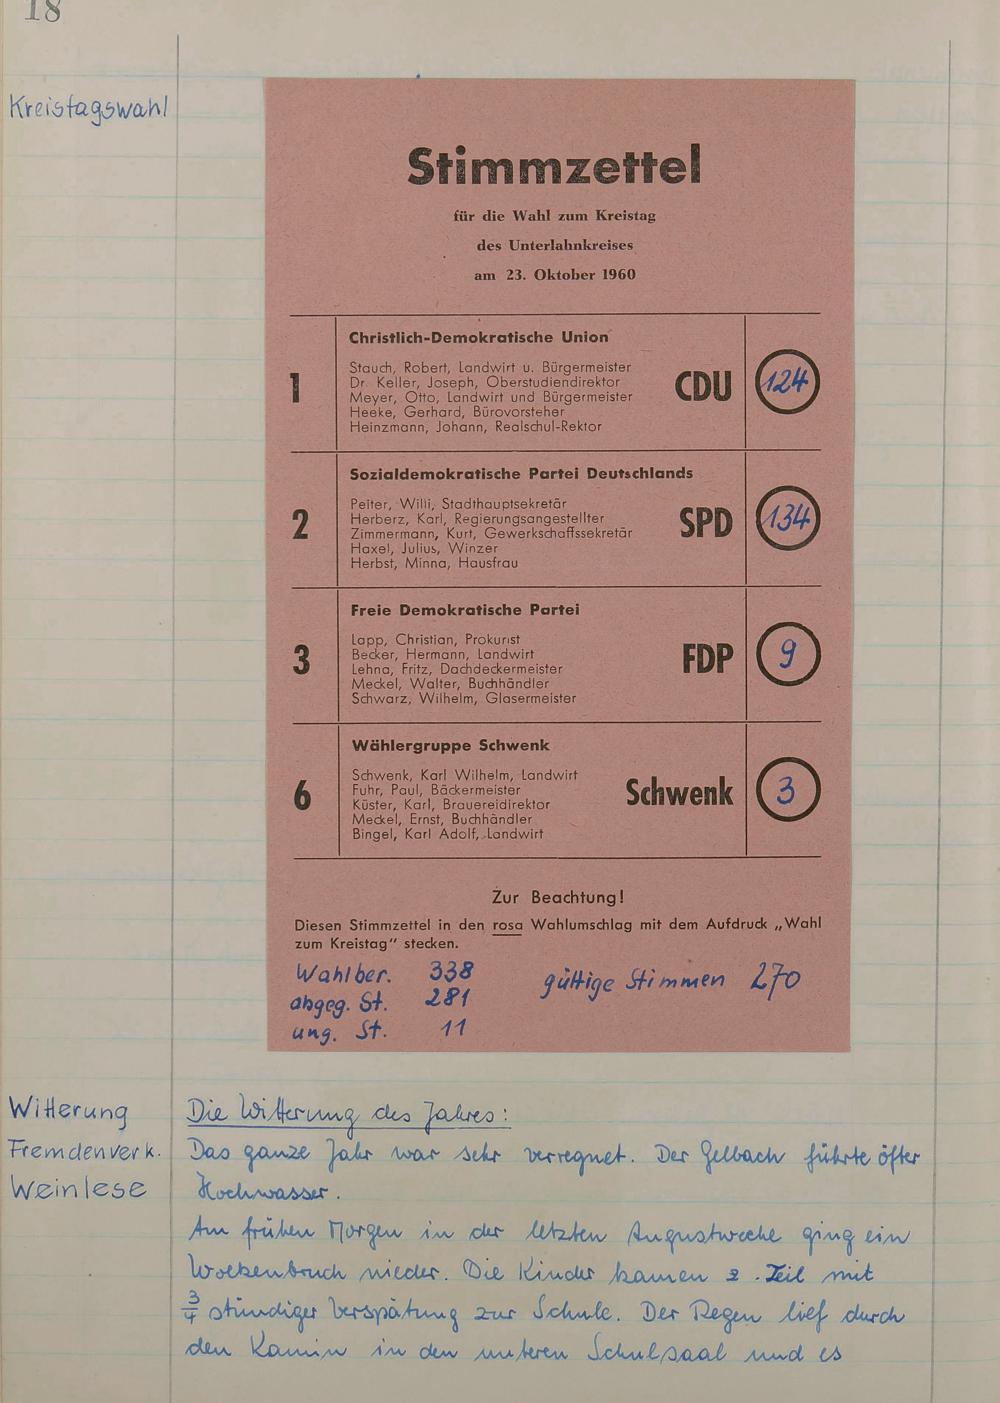 18
Kreistagswahl
Stimmzettel
für die Wahl zum Kreistag
des Unterlahnkreises
am 23. Oktober 1960
Christlich-Demokratische Union
1
Stauch, Robert, Landwirt u. Bürgermeister
Dr. Keller, Joseph, Oberstudiendirektor
Meyer, Otto, Landwirt und Bürgermeister
Heeke, Gerhard, Bürovorsteher
Heinzmann, Johann, Realschul-Rektor
CDU
124
Sozialdemokratische Partei Deutschlands
2
Peiter, Willi, Stadthauptsekretär
Herberz, Karl, Regierungsangestellter
Zimmermann, Kurt, Gewerkschaftssekretär
Haxel, Julius, Winzer
Herbst, Minna, Hausfrau
SPD
134
Freie Demokratische Partei
3
Lapp, Christian, Prokurist
Becker, Hermann, Landwirt
Lehna, Fritz, Dachdeckermeister
Meckel, Walter, Buchhändler
Schwarz, Wilhelm, Glasermeister
FDP
9
Wählergruppe Schwenk
6
Schwenk, Karl Wilhelm, Landwirt
Fuhr, Paul, Bäckermeister
Küster, Karl, Brauereidirektor
Meckel, Ernst, Buchhändler
Bingel, Karl Adolf, Landwirt
Schwenk
3
Zur Beachtung!
Diesen Stimmzettel in den rosa Wahlumschlag mit dem Aufdruck „Wahl
zum Kreistag" stecken.
Wahlber. 338 gültige Stimmen 270
abgeg. St. 281
ung. St. 11
Witterung
Fremdenverk.
Weinlese
Die Witterung des Jahres:
Das ganze Jahr war sehr verregnet. Der Gelbach führte öfter
Hochwasser.
Am frühen Morgen in der letzten Augustwoche ging ein
Wolkenbruch nieder. Die Kinder kamen z. Teil mit
3/4 stündiger Verspätung zur Schule. Der Regen lief durch
den Kamin in den unteren Schulsaal und es